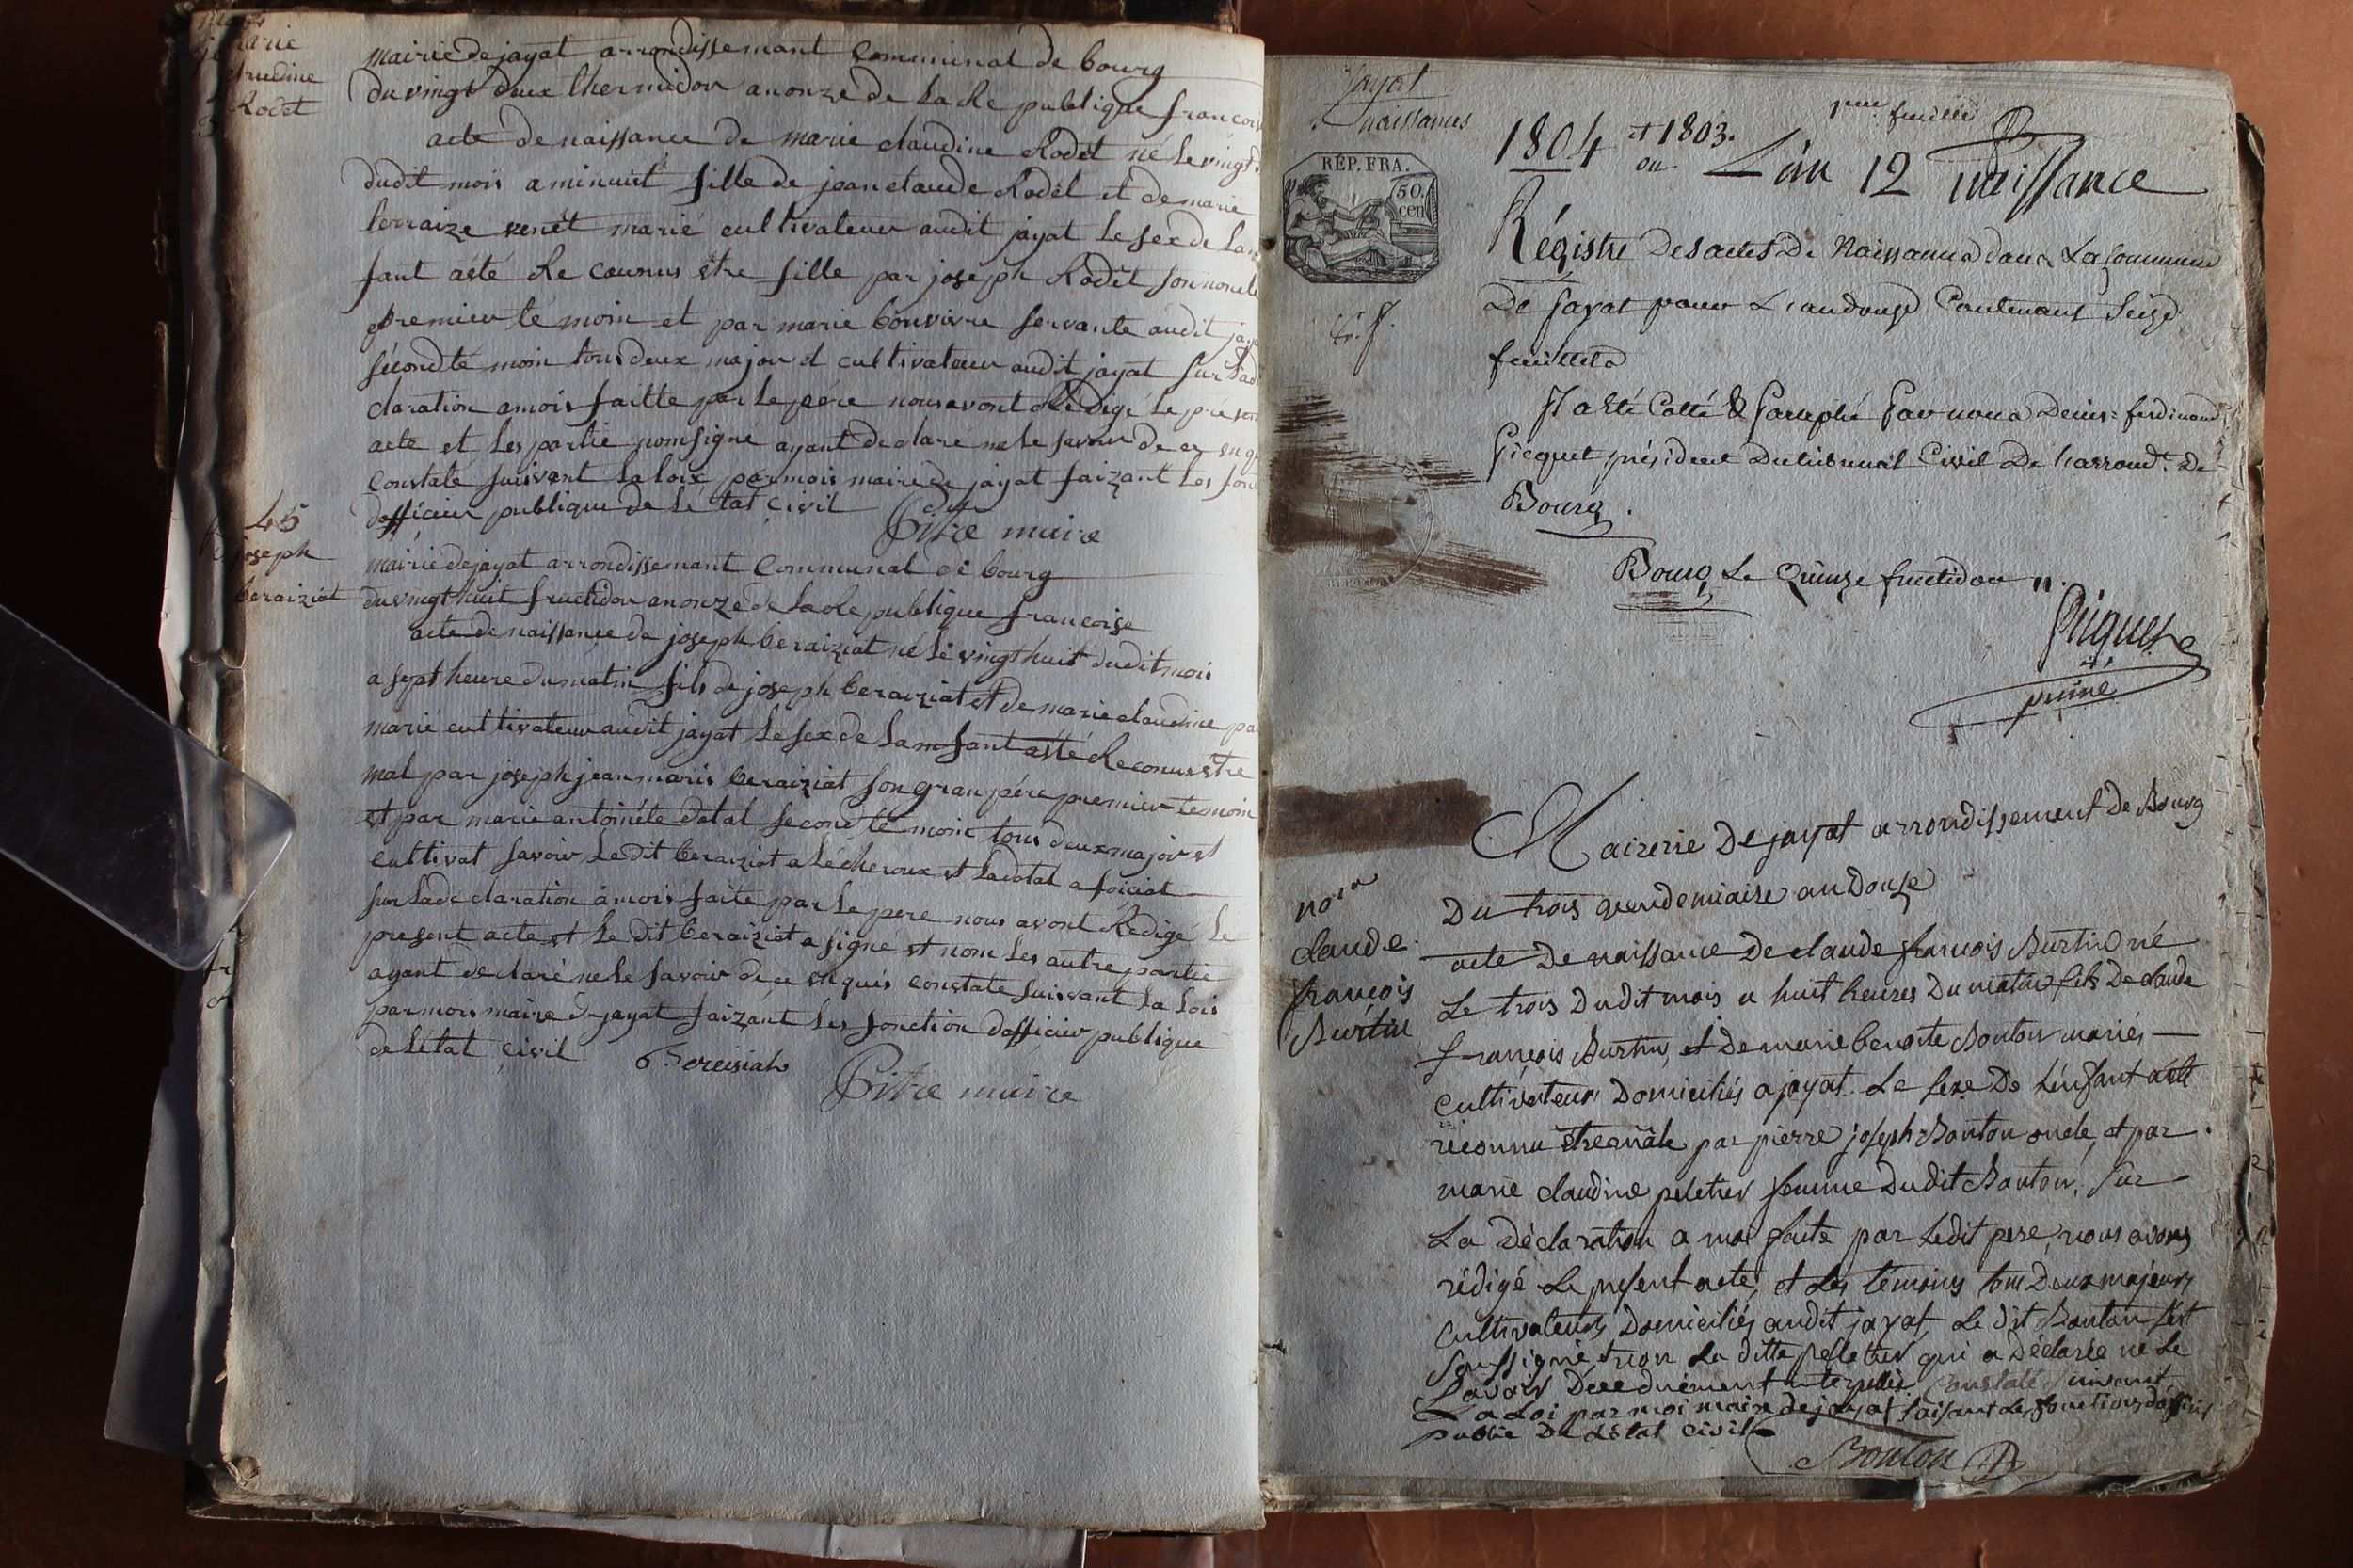 marie
claudine
Rodet
mairie de jayat arrondissemant communal de bourg
du vingt deux thermidor an onze de la Re publique francois
acte de naissance de marie claudine Rodet né le vingt
dudit mois a minuit fille de jean claude Rodet et de marie
terraize venét marié cultivateur audit jayat le sex de lan
fant asté Re counus étre fille par joseph Rodet son noncle
premier té moin et par marie bouvivre servante audit jaya
sécond té moin tous deux major et cultivateur audit jayat sur lad
claration a mois faitte par le pére nous avont Redigé le présen
acte et les partie nom signé ayant declare ne le savoir de ce enq
constaté suivant la loix par mois maire de jayat faizant les fon
dofficier publique de lé tat civil
Pitre maire
45
joseph
beraiziat
mairie de jayat arrondissemant communal de bourg
du vingt huit fructidor an onze de la Re publique francoise
acte de naissance de joseph beraiziat né lé vingt huit dudit mois
a sept heure du matin fils de joseph beraiziat et de marie claudine pa
marié cultivateur audit jayat le sex de lamfant asté Reconus étre
mal par joseph jean marie beraiziat son gran pére premier temoin
et par marie antoinéte datal second té moin tous deux major et
cultivat savoir le dit beraiziat a lécheroux et la datal a foiciat
sur la de claration a mois faite par le pere nous avont Redigé le
present acte et le dit beraiziat a signé et nom les autre partie
ayant declaré ne le savoir de ce enquis constate suivant la lois
par mois maire de jayat faizant les fonction dofficier publique
de létat civil
Bereisiat
Pitre maire
Jayat
naissances
1ere feuille
1804 et 1803.
ou L'an 12 naissance
RÉP. FRA.
50.
cen
Régistre Des actes De Naissance dans La Commune
De Jayat pour L'an douze Contenant Seize
feuillets
Il a Eté Cotté & Paraphé Par nous Denis-ferdinand
Picquet président Du tribunal Civil De l'arrond.t De
Bourg.
Bourg Le Quinze fructidor 11.
Picquet
Mairerie De jayat arrondissement De Bourg
no 1er
claude
françois
Burtin
Du trois vendemiaire an Douze
acte De naissance De claude françois Burtin né
Le trois Dudit mois a huit heures Du matin fils De claude
françois Burtin, et De marie benoite Bouton mariés
cultivateurs Domiciliés a jayat. Le sexe De L'enfant a été
reconnu être mâle par pierre joseph Bouton oncle, et par
marie claudine peletier femme Dudit Bouton. Sur
La Déclaration a moi faite par Ledit pere, nous avons
rédigé Le present acte, et Les témoins tous Deux majeurs
cultivateurs Domiciliés audit jayat, Le dit Bouton s'est
soussigné, non La ditte pelletier qui a Déclarée ne Le
savoir De ce Duement interpellée. constaté suivant
La Loi par moi maire de jayat faisant Les fonctions d'officier
public De L'état civil
Bouton